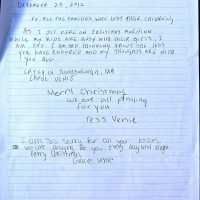 DECEMBER 25, 2012
TO ALL THE FAMILIES WHO LOST THEIR CHILDREN,
AS I SIT HERE ON CHRISTMAS MORNING
WHILE MY KIDS ARE BUSY WITH THEIR GIFTS, I
AM SAD. I AM SAD THINKING ABOUT THE LOSS
YOU HAVE ENDURED AND MY THOUGHTS ARE WITH
YOU ALL.
CRYING IN SOUTHBOROUGH, MA
CAROL
Merry Christmas
we are all praying
for you
Tess
I am so sorry for all your losses
we are praying for you every day and night
Merry Christmas
Grace